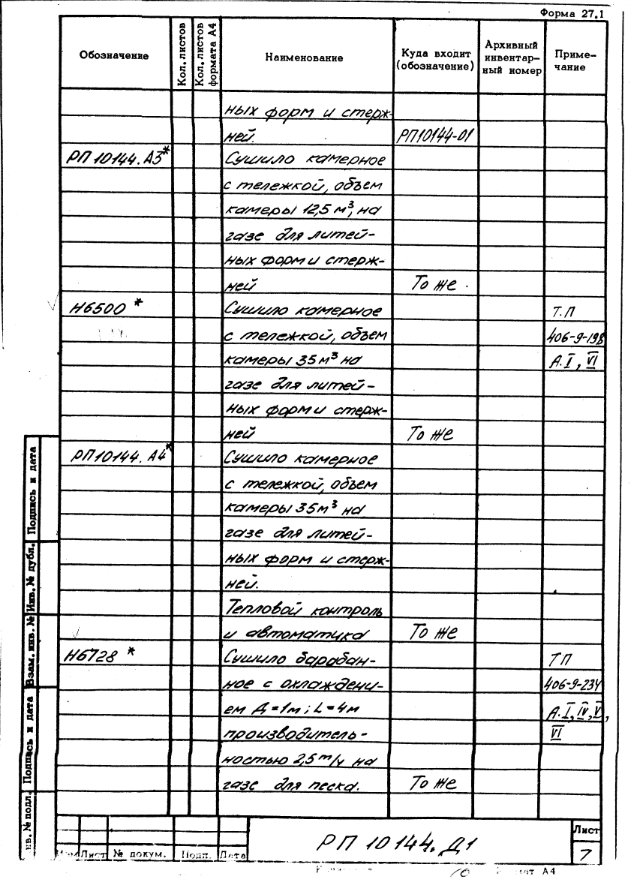 Форма 27.1
Обозначение Кол. листов Кол. листов формата А4 Наименование Куда входит (обозначение) Архивный инвентарный номер Примечание
ных форм и стерж-
ней. РП10144-01
РП 10144. А3* Сушило камерное
с тележкой, объем
камеры 12,5 м³, на
газе для литей-
ных форм и стерж-
ней То же
Н6500 * Сушило камерное Т.П
с тележкой, объем 406-9-198
камеры 35 м³ на А. I, VI
газе для литей-
ных форм и стерж-
ней То же
РП 10144. А4* Сушило камерное
с тележкой, объем
камеры 35 м³ на
газе для литей-
ных форм и стерж-
ней.
Тепловой контроль
и автоматика То же
Н6728 * Сушило барабан- ТП
ное с охлаждени- 406-9-234
ем Д=1м; L=4м А. I, IV, V,
производитель- VI
ностью 2,5 т/ч на
газе для песка. То же
Подпись и дата
Инв. № дубл.
Взам. инв. №
Подпись и дата
Инв. № подл.
Изм Лист № докум. Подп. Дата
РП 10144. Д1
Лист
7
Формат А4